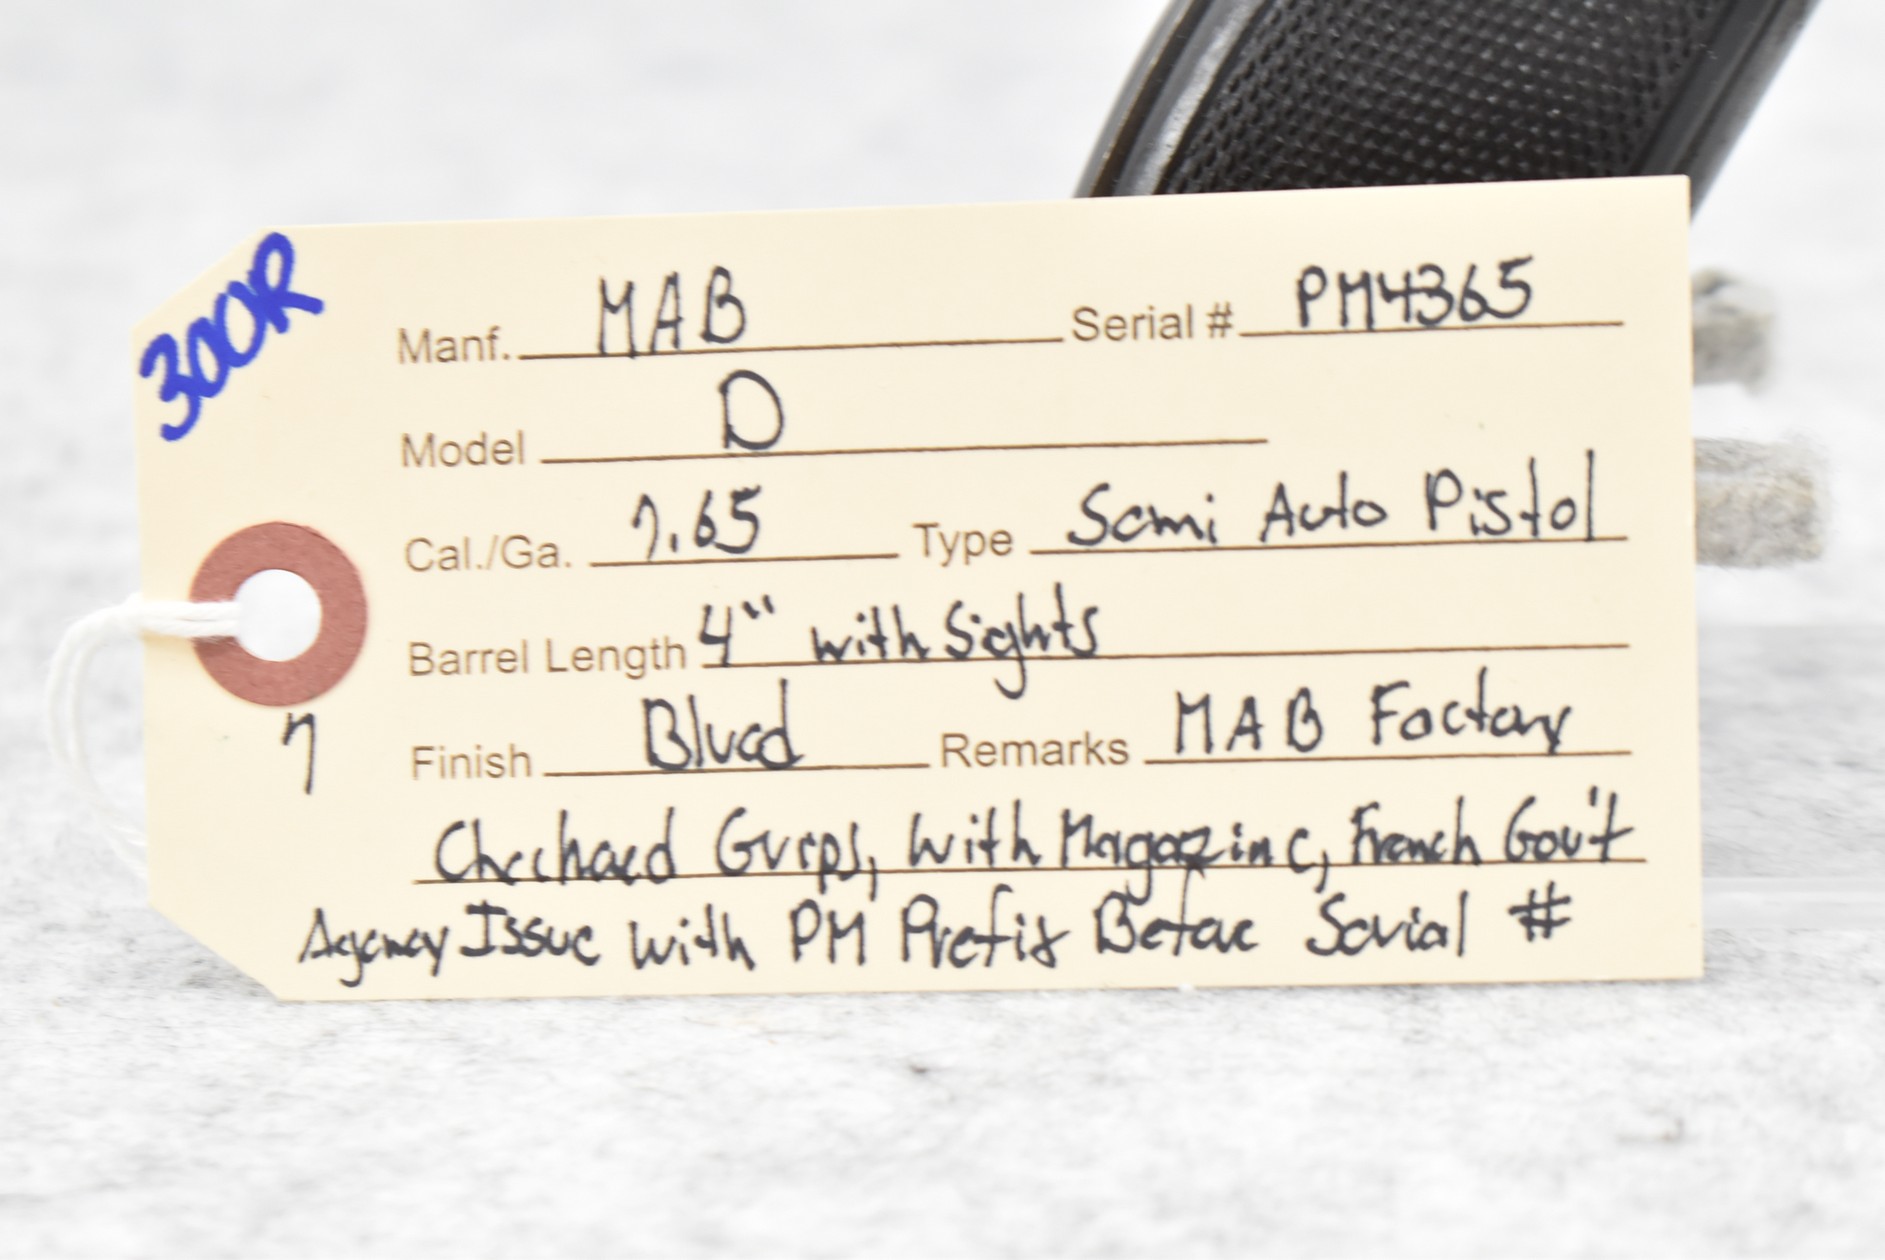 300R
Manf. MAB Serial # PM4365
Model D
Cal./Ga. 7.65 Type Semi Auto Pistol
Barrel Length 4" with Sights
Finish Blued Remarks MAB Factory
7
Checkaed Gvrps, With Magazine, French Gov't
Agency Issue with PM Prefix Before Serial #